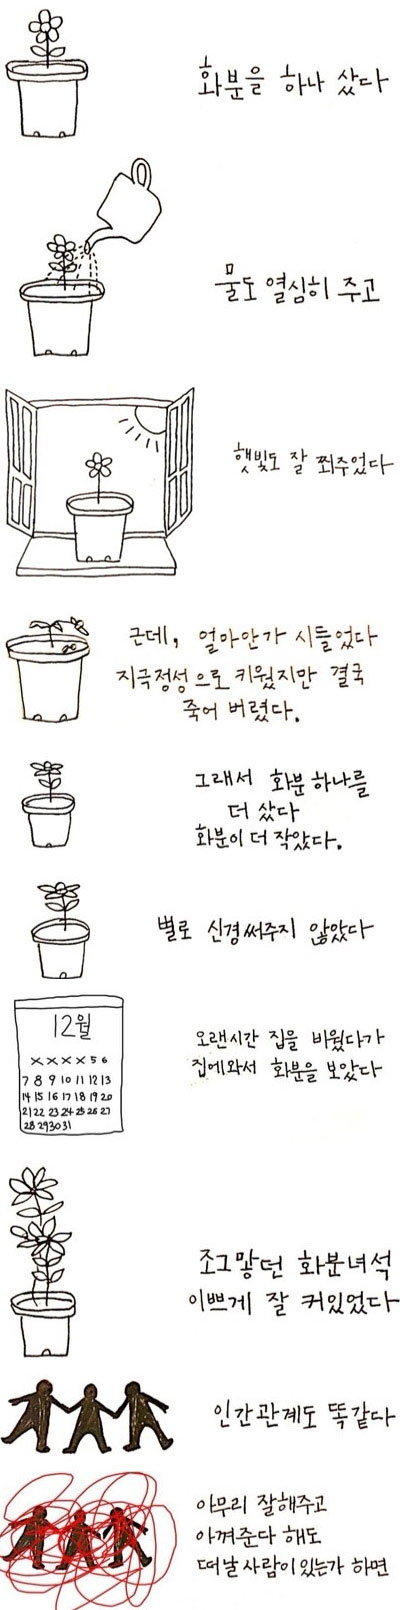 화분을 하나 샀다
물도 열심히 주고
햇빛도 잘 쬐주었다
근데, 얼마안가 시들었다
지극정성으로 키웠지만 결국
죽어 버렸다.
그래서 화분 하나를
더 샀다
화분이 더 작았다.
별로 신경써주지 않았다
12월
X X X X 5 6
7 8 9 10 11 12 13
14 15 16 17 18 19 20
21 22 23 24 25 26 27
28 29 30 31
오랜시간 집을 비웠다가
집에와서 화분을 보았다
조그맣던 화분녀석
이쁘게 잘 커있었다
인간관계도 똑같다
아무리 잘해주고
아껴준다 해도
떠날 사람이 있는가 하면